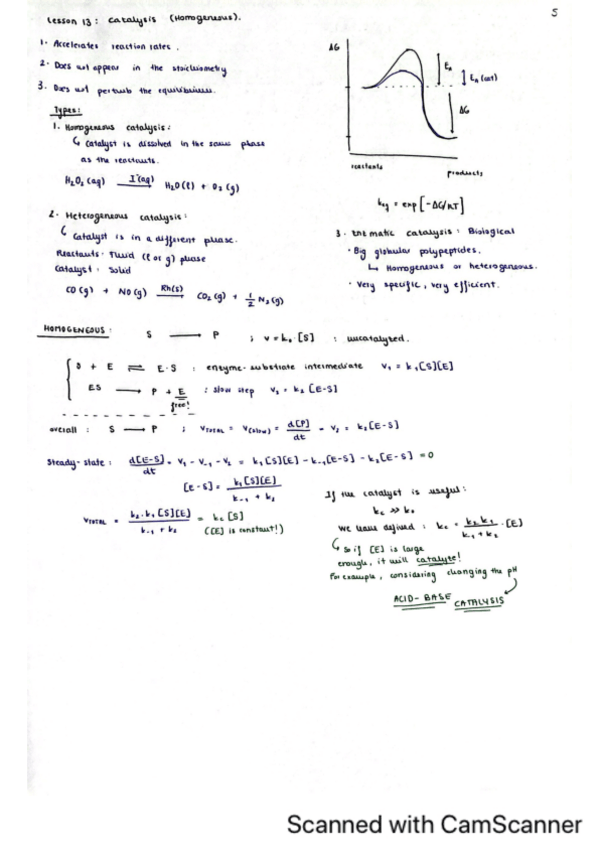 5
Lesson 13: Catalysis (Homogeneous).
1. Accelerates reaction rates.
2. Does not appear in the stoichiometry
3. Does not perturb the equilibrium.
Types:
1. Homogeneous catalysis:
↳ Catalyst is dissolved in the same phase
as the reactants.
H₂O₂(aq) —I⁻(aq)→ H₂O(l) + O₂(g)
ΔG
Eₐ
Eₐ(cat)
ΔG
reactants
products
k_eq = exp[-ΔG/RT]
2. Heterogeneous catalysis:
↳ Catalyst is in a different phase.
Reactants: Fluid (l or g) phase
Catalyst: Solid
CO(g) + NO(g) —Rh(s)→ CO₂(g) + 1/2 N₂(g)
3. Enzymatic catalysis: Biological
· Big globular polypeptides.
↳ Homogeneous or heterogeneous.
· Very specific, very efficient.
HOMOGENEOUS: S → P ; v = k₀·[S] : uncatalysed.
S + E ⇌ E·S : enzyme-substrate intermediate v₁ = k₁[S][E]
ES → P + E : slow step v₂ = k₂[E-S]
free!
overall: S → P ; v_TOTAL = v(slow) = d[P]/dt = v₂ = k₂[E-S]
Steady-state: d[E-S]/dt = v₁ - v₋₁ - v₂ = k₁[S][E] - k₋₁[E-S] - k₂[E-S] = 0
[E-S] = k₁[S][E]/(k₋₁ + k₂)
v_TOTAL = k₂·k₁[S][E]/(k₋₁ + k₂) = k_c[S]
([E] is constant!)
If the catalyst is useful:
k_c >> k₀
We have defined: k_c = k₂k₁/(k₋₁ + k₂)·[E]
↳ So if [E] is large
enough, it will catalyse!
For example, considering changing the pH
ACID-BASE CATALYSIS
Scanned with CamScanner